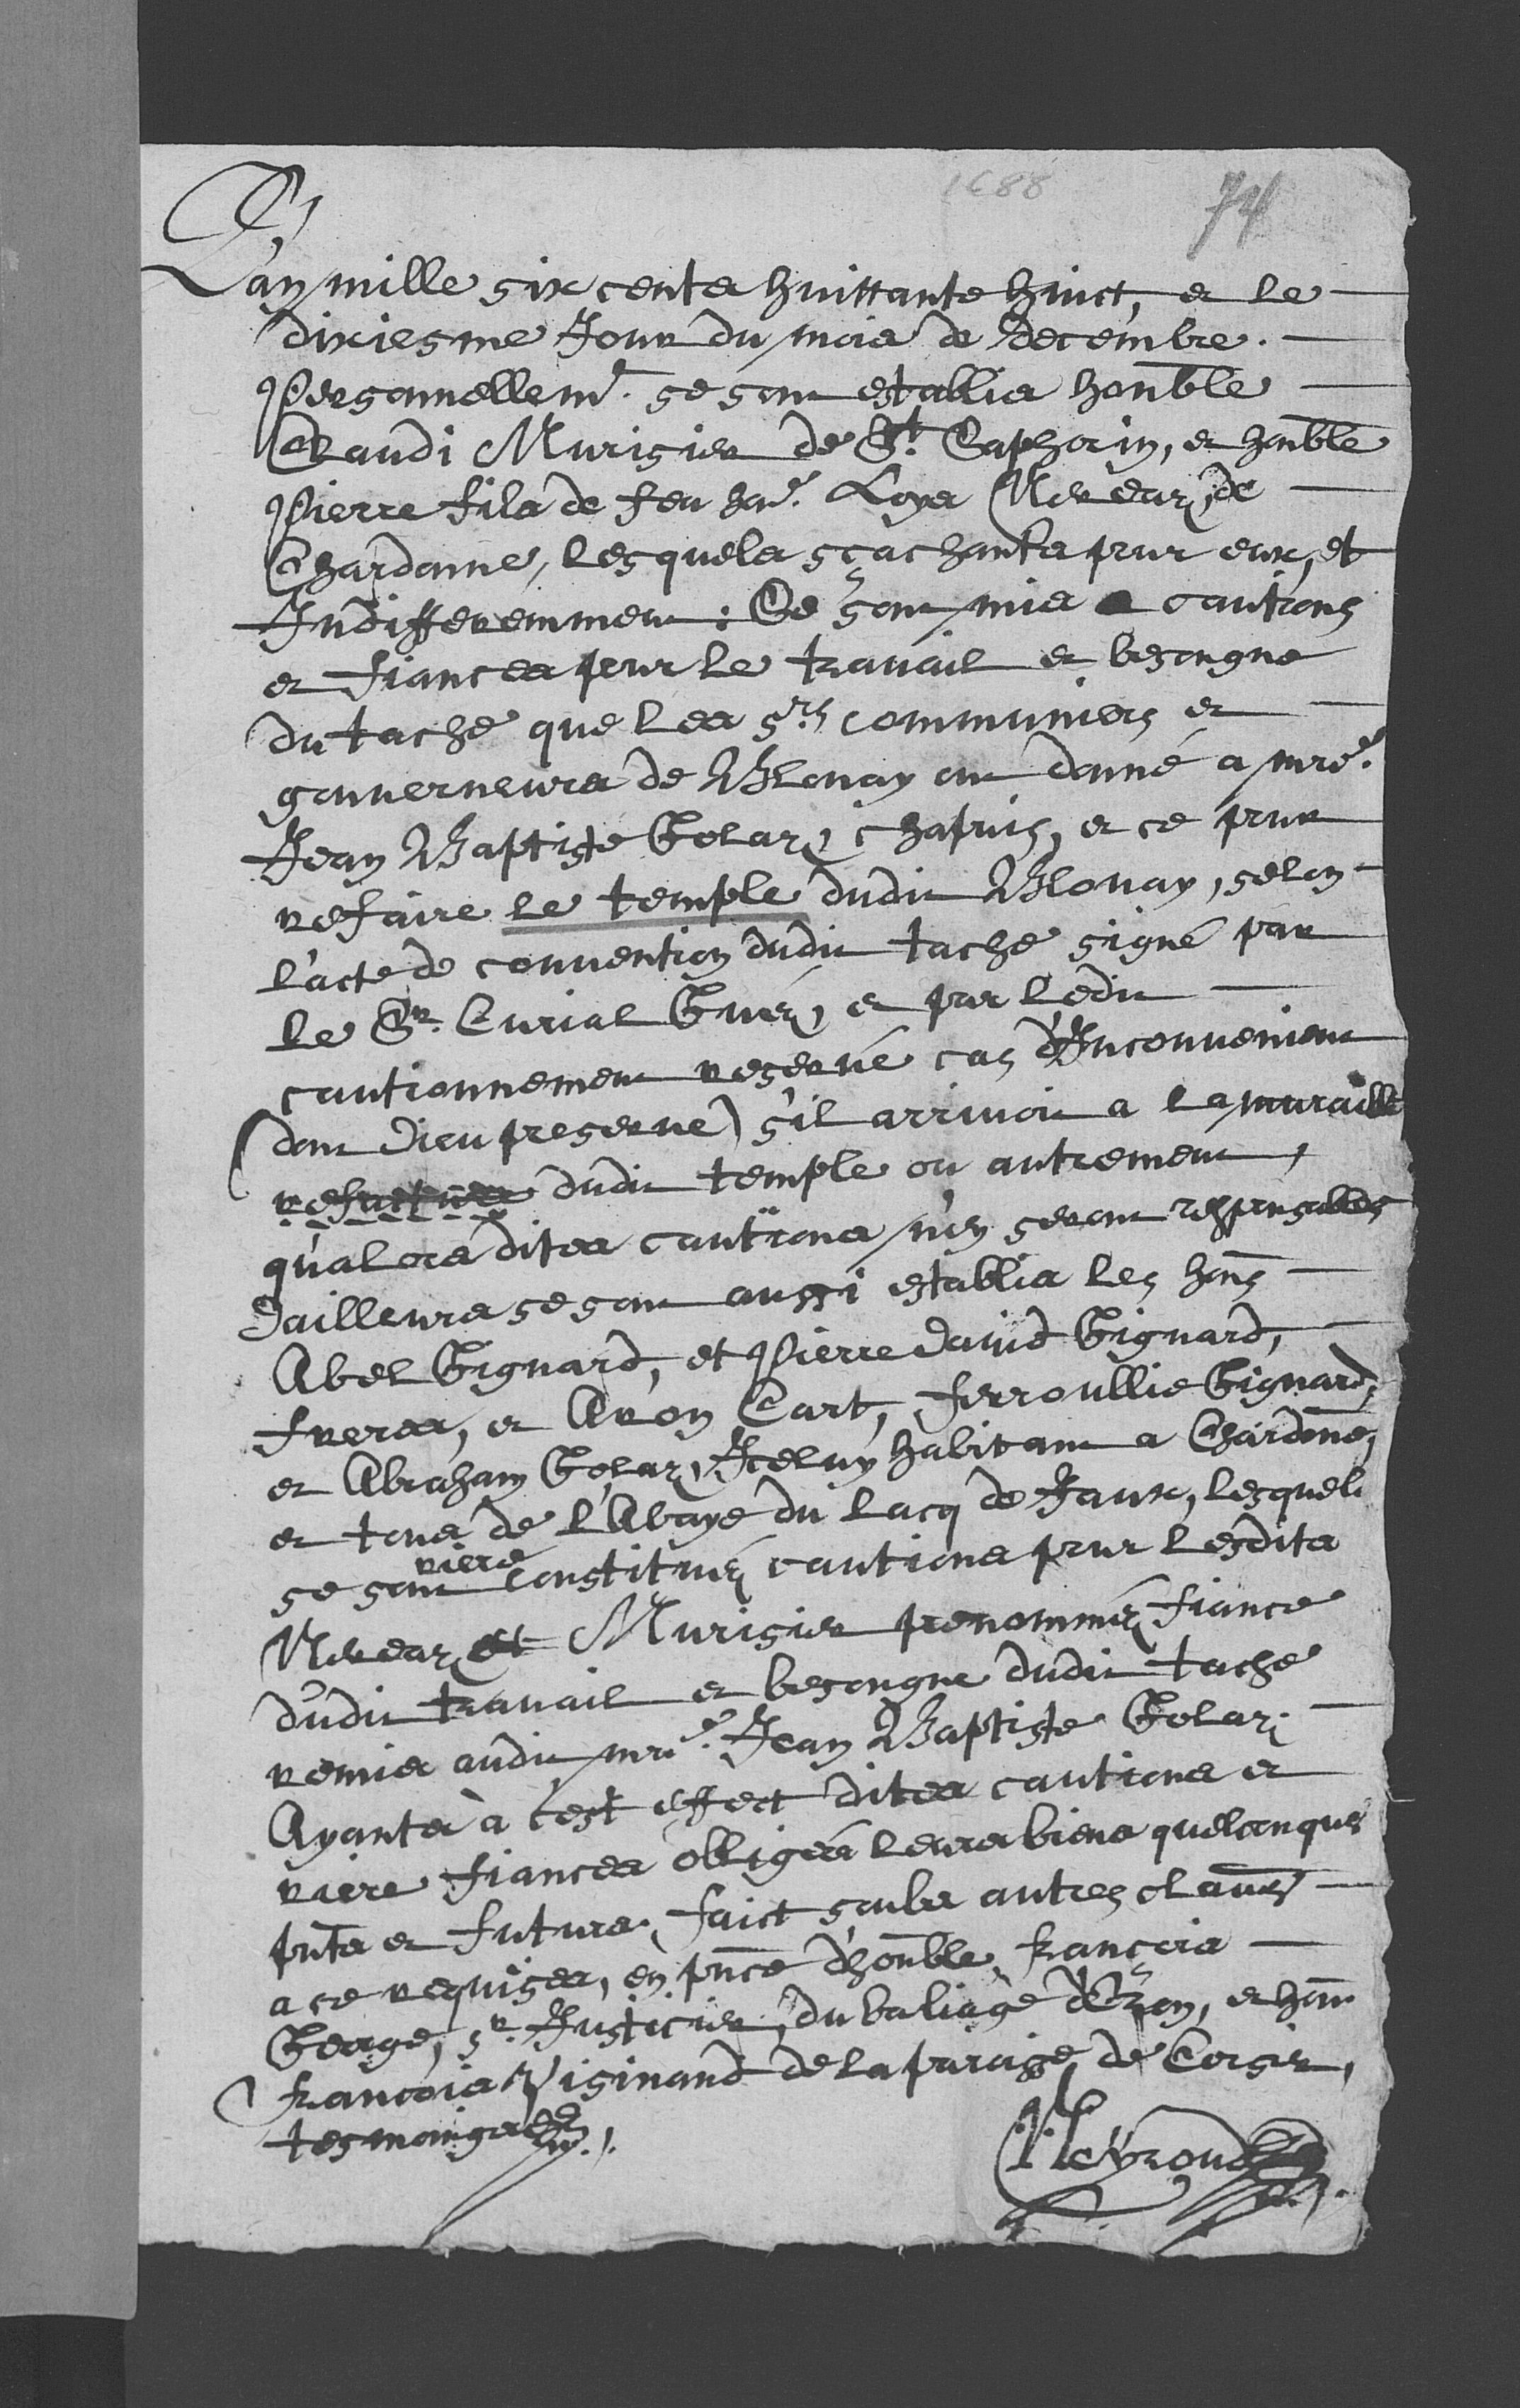 1688
74
L'an mille six cents huittante huict, et le
dixiesme Jour du mois de Decembre.
Personnellemt. se sont establis honble
Claudi Murisier de St. Saphorin, et honble
Pierre fils de feu hon. Loys Neveuz, de
Chardonne, lesquels sçachants pour eux, et
Indifferemment: Se sont mis a cautions
et fiances pour le travail et besongne
du tache que les Srs communiers et
gouverneurs de Blonay ont donné a mre.
Jean Baptiste Golaz, chapuis, et ce pour
refaire le temple dudit Blonay, selon
l'acte de convention dudit tache signé par
le Sr. Curial Guex, et par ledit
cautionnement reservé cas d'Inconvenient
(dont Dieu preserve) s'il arrivoit a la muraille
dudit temple ou autrement,
qu'alors dites cautions n'en seront responsables
Dailleurs se sont aussi establis les hons
Abel Gignard, et Pierre David Gignard,
freres, et Aron Cart, ferroullie Gignard,
et Abraham Golaz, Iceluy habitant a Chardone,
et tous de l'Abaye du lacq de Jaux, lesquels
se sont riere constitués cautions pour lesdits
Neveuz et Murisier prenommés fiance
dudit travail et besongne dudit tache
remis audit mre. Jean Baptiste Golaz.
Ayants à cest effect dites cautions et
riere fiances obligés leurs biens quelconques
pnts et futurs, faict soubs autres clauses
a ce requises, en pnce d'honble françois
George, Sr. Justicier, du baliage d'Oron, et hon
françois Visinand de la paroisse de Corsier,
tesmoings